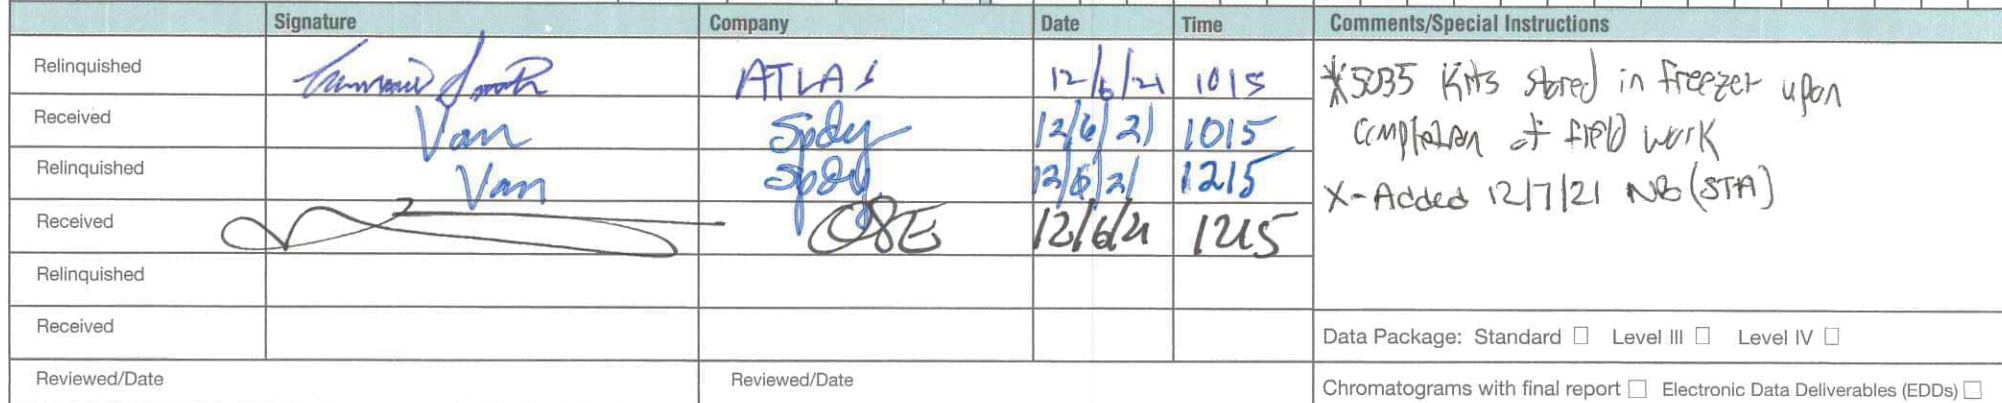 Signature Company Date Time Comments/Special Instructions
Relinquished ATLAS 12/6/21 1015 *5035 Kits stored in freezer upon
Received Van Spdy 12/6/21 1015 completion of field work
Relinquished Van Spdy 12/6/21 1215 X-Added 12/7/21 NB (STA)
Received OSE 12/6/21 1215
Relinquished
Received Data Package: Standard ☐ Level III ☐ Level IV ☐
Reviewed/Date Reviewed/Date Chromatograms with final report ☐ Electronic Data Deliverables (EDDs) ☐